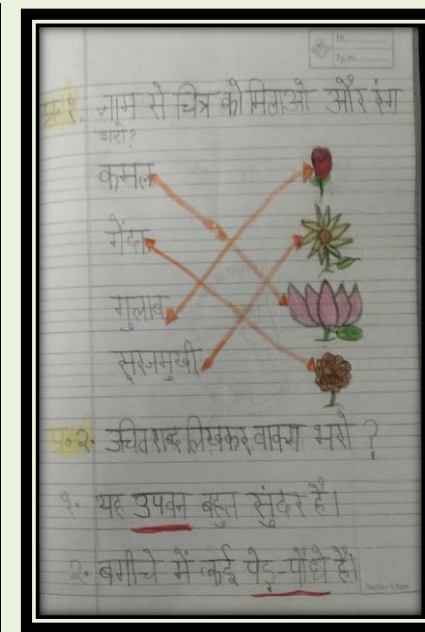 प्र॰१. नाम से चित्र को मिलाओ और रंग
भरो?
कमल
गेंदा
गुलाब
सूरजमुखी
प्र॰२. उचित शब्द लिखकर वाक्य भरो ?
१. यह उपवन बहुत सुंदर है।
२. बगीचे में कई पेड़-पौधे हैं।